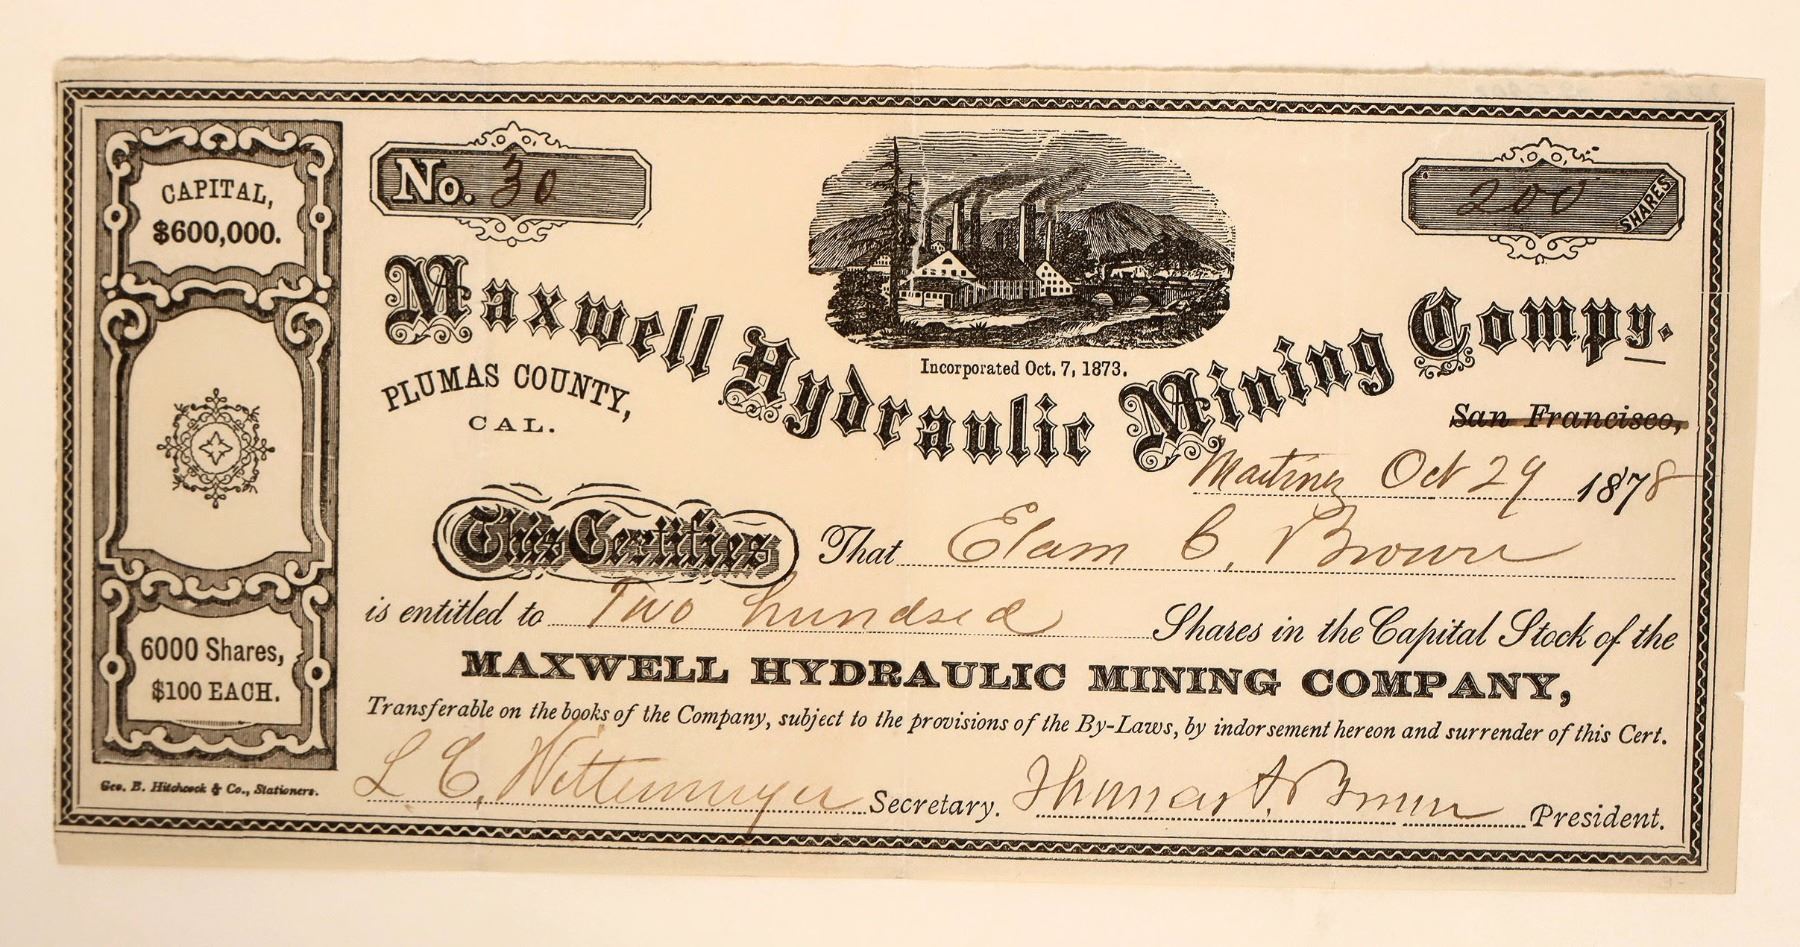 CAPITAL,
$600,000.
6000 Shares,
$100 EACH.
Geo. B. Hitchcock & Co., Stationers.
No. 30
200 SHARES
Maxwell Hydraulic Mining Compy.
Incorporated Oct. 7, 1873.
PLUMAS COUNTY,
CAL.
San Francisco,
Martinez Oct 29 1878
This Certifies That Elam C. Brown
is entitled to Two hundred Shares in the Capital Stock of the
MAXWELL HYDRAULIC MINING COMPANY,
Transferable on the books of the Company, subject to the provisions of the By-Laws, by indorsement hereon and surrender of this Cert.
L. C. Wittenmyer Secretary. Thomas A. Brown President.